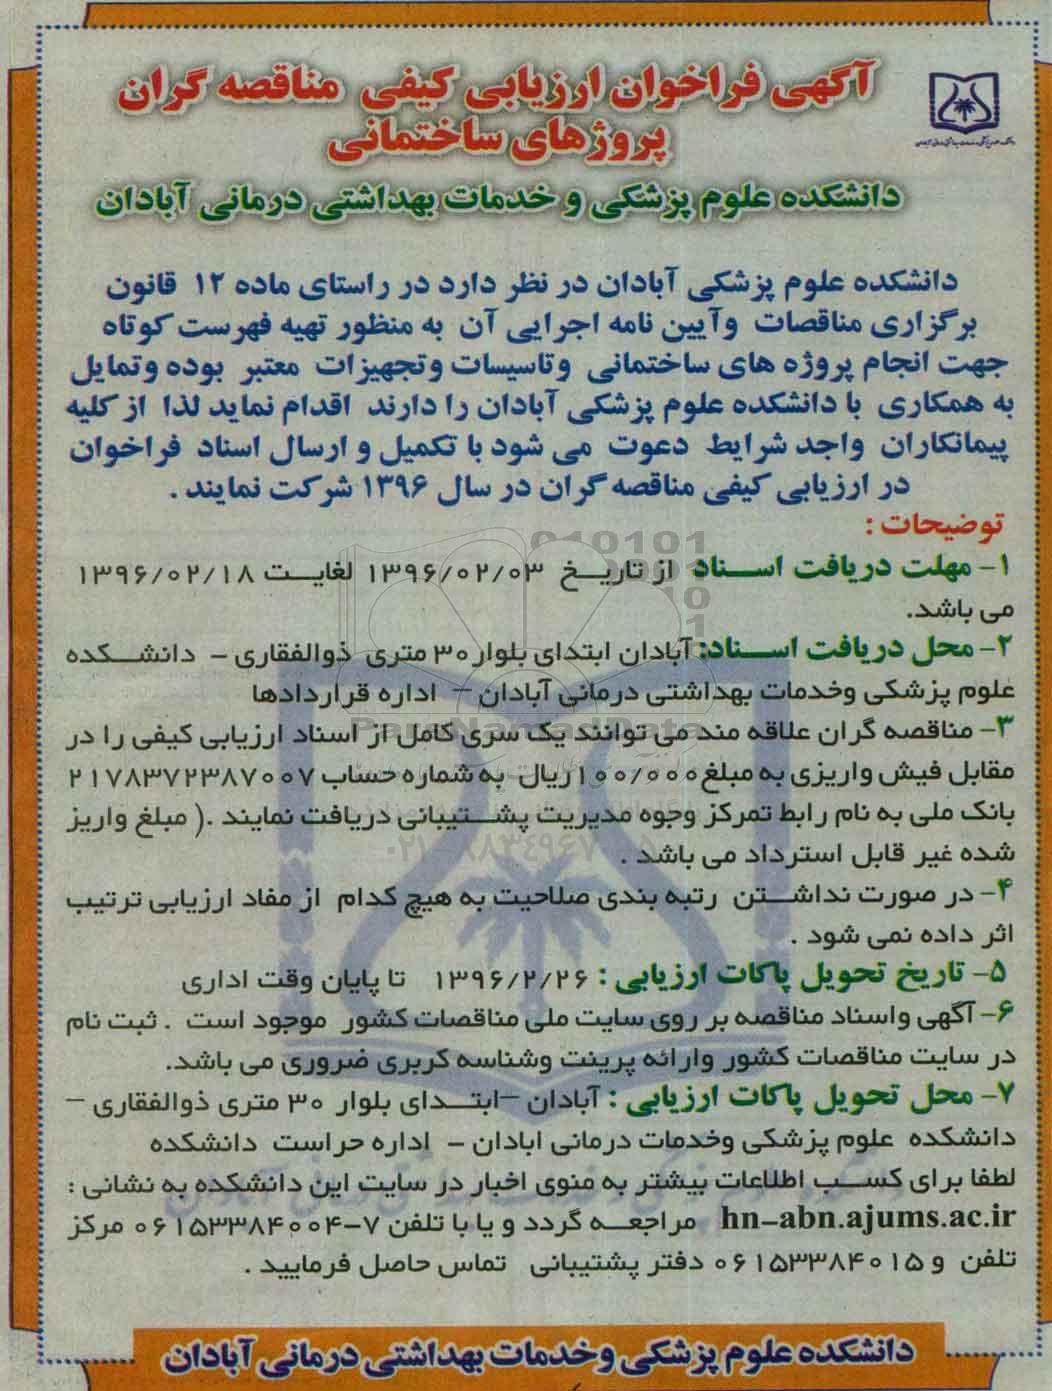 آگهی فراخوان ارزیابی کیفی مناقصه گران
پروژهای ساختمانی
دانشکده علوم پزشکی و خدمات بهداشتی درمانی آبادان
دانشکده علوم پزشکی آبادان در نظر دارد در راستای ماده ۱۲ قانون
برگزاری مناقصات وآیین نامه اجرایی آن به منظور تهیه فهرست کوتاه
جهت انجام پروژه های ساختمانی وتاسیسات وتجهیزات معتبر بوده وتمایل
به همکاری با دانشکده علوم پزشکی آبادان را دارند اقدام نماید لذا از کلیه
پیمانکاران واجد شرایط دعوت می شود با تکمیل و ارسال اسناد فراخوان
در ارزیابی کیفی مناقصه گران در سال ۱۳۹۶ شرکت نمایند .
توضیحات :
۱- مهلت دریافت اسناد از تاریخ ۱۳۹۶/۰۲/۰۳ لغایت ۱۳۹۶/۰۲/۱۸
می باشد.
۲- محل دریافت اسناد: آبادان ابتدای بلوار ۳۰ متری ذوالفقاری – دانشکده
علوم پزشکی وخدمات بهداشتی درمانی آبادان – اداره قراردادها
۳- مناقصه گران علاقه مند می توانند یک سری کامل از اسناد ارزیابی کیفی را در
مقابل فیش واریزی به مبلغ ۱۰۰/۰۰۰ ریال به شماره حساب ۲۱۷۸۳۷۲۳۸۷۰۰۷
بانک ملی به نام رابط تمرکز وجوه مدیریت پشتیبانی دریافت نمایند .( مبلغ واریز
شده غیر قابل استرداد می باشد .
۴- در صورت نداشتن رتبه بندی صلاحیت به هیچ کدام از مفاد ارزیابی ترتیب
اثر داده نمی شود .
۵- تاریخ تحویل پاکات ارزیابی : ۱۳۹۶/۲/۲۶ تا پایان وقت اداری
۶- آگهی واسناد مناقصه بر روی سایت ملی مناقصات کشور موجود است . ثبت نام
در سایت مناقصات کشور وارائه پرینت وشناسه کربری ضروری می باشد.
۷- محل تحویل پاکات ارزیابی : آبادان –ابتدای بلوار ۳۰ متری ذوالفقاری –
دانشکده علوم پزشکی وخدمات درمانی ابادان – اداره حراست دانشکده
لطفا برای کسب اطلاعات بیشتر به منوی اخبار در سایت این دانشکده به نشانی :
hn-abn.ajums.ac.ir مراجعه گردد و یا با تلفن ۷-۰۶۱۵۳۳۸۴۰۰۴ مرکز
تلفن و ۰۶۱۵۳۳۸۴۰۱۵ دفتر پشتیبانی تماس حاصل فرمایید .
دانشکده علوم پزشکی وخدمات بهداشتی درمانی آبادان